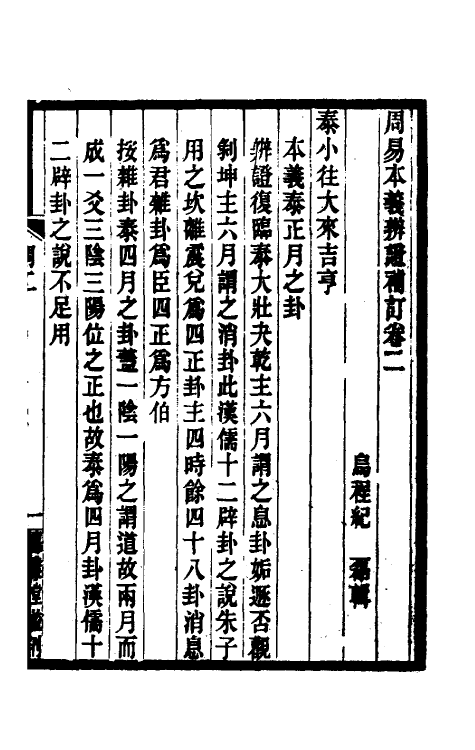 周易本義辨證補訂卷二
烏程紀 磊輯
泰小往大來吉亨
本義泰正月之卦
辨證復臨泰大壯夬乾主六月謂之息卦姤遯否觀
剝坤主六月謂之消卦此漢儒十二辟卦之說朱子
用之坎離震兌爲四正卦主四時餘四十八卦消息
爲君雜卦爲臣四正爲方伯
按雜卦泰四月之卦蓋一陰一陽之謂道故兩月而
成一爻三陰三陽位之正也故泰爲四月卦漢儒十
二辟卦之說不足用